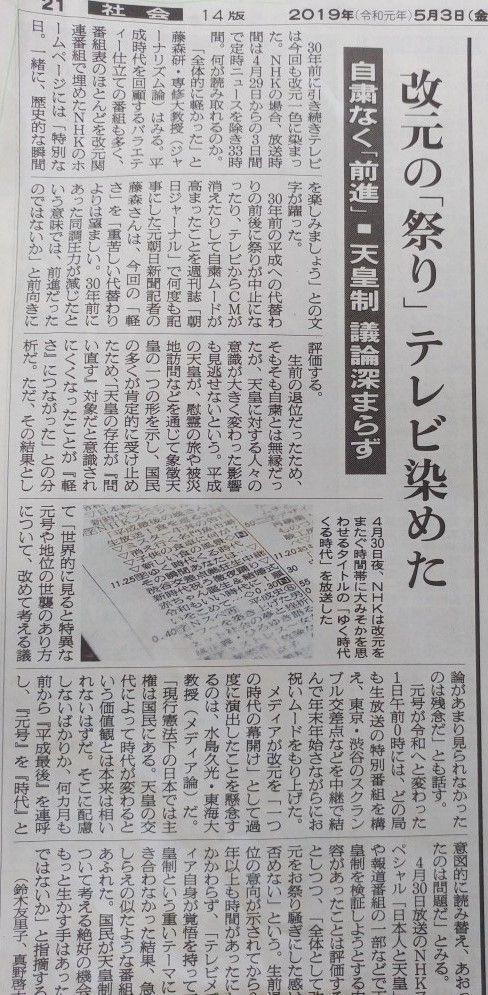 21
社会
14版
2019年(令和元年)5月3日(金
改元の「祭り」テレビ染めた
自粛なく「前進」■天皇制 議論深まらず
30年前に引き続きテレビ
は今回も改元一色に染まっ
た。NHKの場合、放送時
間は4月29日からの3日間
で定時ニュースを除き33時
間。何が読み取れるのか。
「全体的に軽かった」と
藤森研・専修大教授(ジャ
ーナリズム論)はみる。平
成時代を回顧するバラエテ
ィー仕立ての番組も多く、
番組表のほとんどを改元関
連番組で埋めたNHKのホ
ームページには「特別な一
日。一緒に、歴史的な瞬間
を楽しみましょう」との文
字が躍った。
30年前の平成への代替わ
りの前後に祭りが中止にな
ったり、テレビからCMが
消えたりして自粛ムードが
高まったことを週刊誌「朝
日ジャーナル」で何度も記
事にした元朝日新聞記者の
藤森さんは、今回の「軽
さ」を「重苦しい代替わり
よりは望ましい。30年前に
あった同調圧力が減じたと
いう意味では、前進だった
のではないか」と前向きに
評価する。
生前の退位だったため、
そもそも自粛とは無縁だっ
たが、天皇に対する人々の
意識が大きく変わった影響
も見逃せないという。平成
の天皇が、慰霊の旅や被災
地訪問などを通じて象徴天
皇の一つの形を示し、国民
の多くが肯定的に受け止め
たため、「天皇の存在が『問
い直す』対象だと意識され
にくくなったことが『軽
さ』につながった」との分
析だ。ただ、その結果とし
て「世界的に見ると特異な
元号や地位の世襲のあり方
について、改めて考える議
4月30日夜、NHKは改元を
またぐ時間帯に大みそかを思
わせるタイトルの「ゆく時代
くる時代」を放送した
論があまり見られなかった
のは残念だ」とも話す。
元号が令和へと変わった
1日午前0時には、どの局
も生放送の特別番組を構
え、東京・渋谷のスクラン
ブル交差点などを中継で結
んで年末年始さながらにお
祝いムードをもり上げた。
メディアが改元を「一つ
の時代の幕開け」として過
度に演出したことを懸念す
るのは、水島久光・東海大
教授(メディア論)だ。
「現行憲法下の日本では主
権は国民にある。天皇の交
代によって時代が変わると
いう価値観とは本来は相い
れないはずだ。そこに配慮
しないばかりか、何カ月も
前から『平成最後』を連呼
し、『元号』を『時代』と
意図的に読み替え、あおっ
たのは問題だ」とみる。
4月30日放送のNHKス
ペシャル「日本人と天皇
や報道番組の一部などで
皇制を検証しようとする
容があったことは評価す
としつつ、「全体として
元をお祭り騒ぎにした感
否めない」という。生前
位の意向が示されてから
年以上も時間があったに
かかわらず、「テレビメ
ィア自身が覚悟を持って
皇制という重いテーマに
き合わなかった結果、急
しらえの似たような番組
あふれた。国民が天皇制
ついて考える絶好の機会
もっと生かす手はあった
ではないか」と指摘する
(鈴木友里子、真野啓